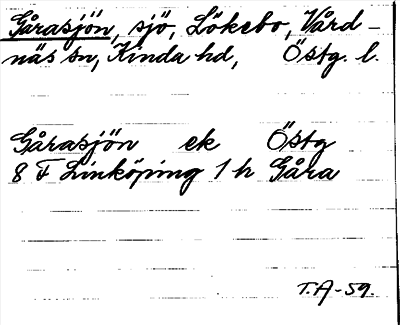 Gårasjön, sjö, Lökebo, Vård-
näs sn, Kinda hd, Östg. l.
Gårasjön ek Östg
8 F Linköping 1 h Gåra
T.A-59.